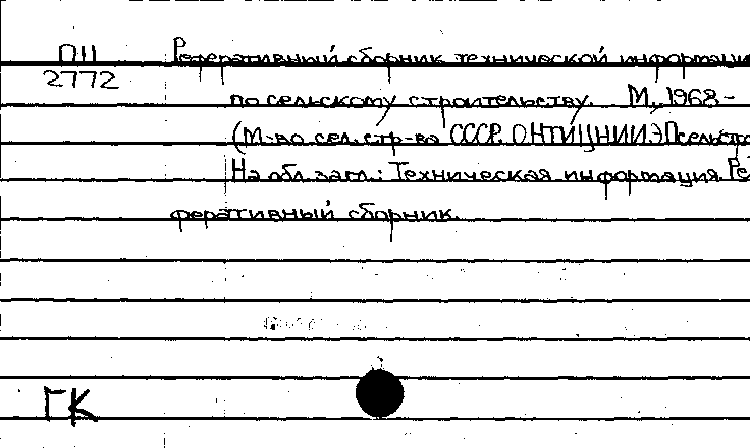 П11 Реферативный сборник технической информации
2772
по сельскому строительству. М., 1968 -
(М-во сел. стр-ва СССР. ОНТИ, ЦНИИЭПсельстро
На обл. загл.: Техническая информация. Ре
феративный сборник.
ГК